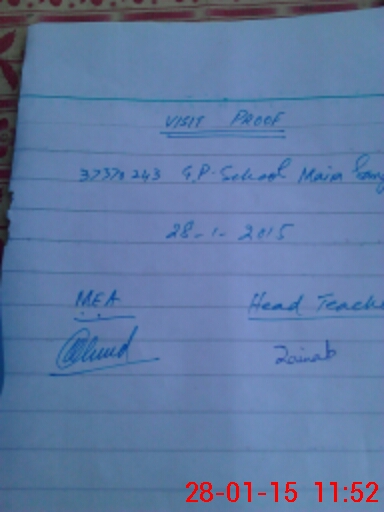 VISIT PROOF
37370243 G.P. School Maira
28-1-2015
MEA Head Teache
Zainab
28-01-15 11:52